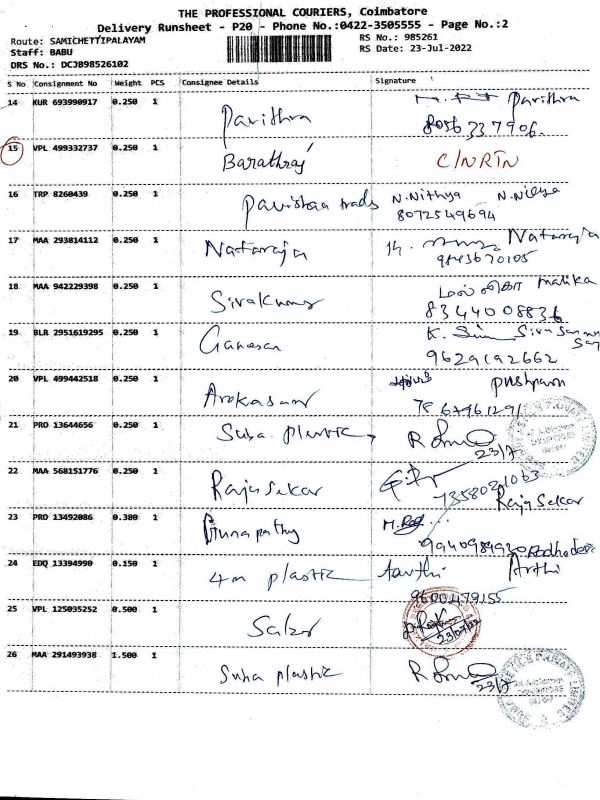 THE PROFESSIONAL COURIERS, Coimbatore
Delivery Runsheet - P20 - Phone No.:0422-3505555 - Page No.:2
Route: SAMICHETTIPALAYAM RS No.: 985261
Staff: BABU RS Date: 23-Jul-2022
DRS No.: DCJB98526102
S No Consignment No Weight PCS Consignee Details Signature
14 KUR 693990917 0.250 1 Pavithra Pavithra
8056337906.
15 VPL 499332737 0.250 1 Barathraj C/NRTN
16 TRP 8260439 0.250 1 trads N.Nithya
8072549694
17 MAA 293814112 0.250 1 Nataraja Nataraja
9843670105
18 MAA 942229398 0.250 1 Sivakumar Malika
8344008836
19 BLR 2951619295 0.250 1 Ganesan K.
9629192662
20 VPL 499442518 0.250 1 Arokasam pushpam
21 PRO 13644656 0.250 1 Suba plastic
23/7
22 MAA 568151776 0.250 1 Raja Sekar 7358021063
Raja Sekar
23 PRO 13492086 0.380 1 Gunapathy
24 EDQ 13394990 0.150 1 4m plastic Aarthi Arthi
9600479155
25 VPL 125035252 0.500 1
23/07/22
26 MAA 291493938 1.500 1 Suba plastic
23/7